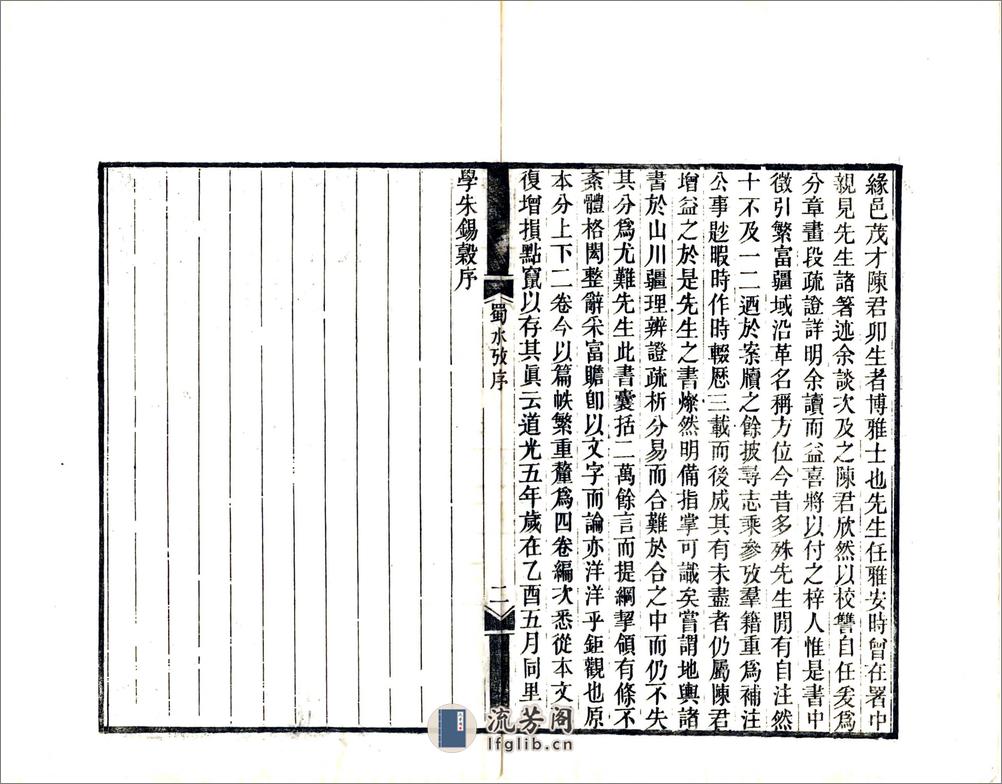 緣邑茂才陳君卯生者博雅士也先生任雅安時曾在署中
親見先生諸箸述余談次及之陳君欣然以校讐自任爰爲
分章畫段疏證詳明余讀而益喜將以付之梓人惟是書中
徵引繁富疆域沿革名稱方位今昔多殊先生閒有自注然
十不及一二迺於案牘之餘披尋志乘參攷羣籍重爲補注
公事尟暇時作時輟厯三載而後成其有未盡者仍屬陳君
增益之於是先生之書燦然明備指掌可識矣嘗謂地輿諸
書於山川疆理辨證疏析分易而合難於合之中而仍不失
其分爲尤難先生此書囊括二萬餘言而提綱挈領有條不
紊體格閎整辭采富贍卽以文字而論亦洋洋乎鉅觀也原
本分上下二卷今以篇帙繁重釐爲四卷編次悉從本文不
復增損點竄以存其眞云道光五年歲在乙酉五月同里後
學朱錫穀序
蜀水攷序
二
流芳阁
lfglib.cn